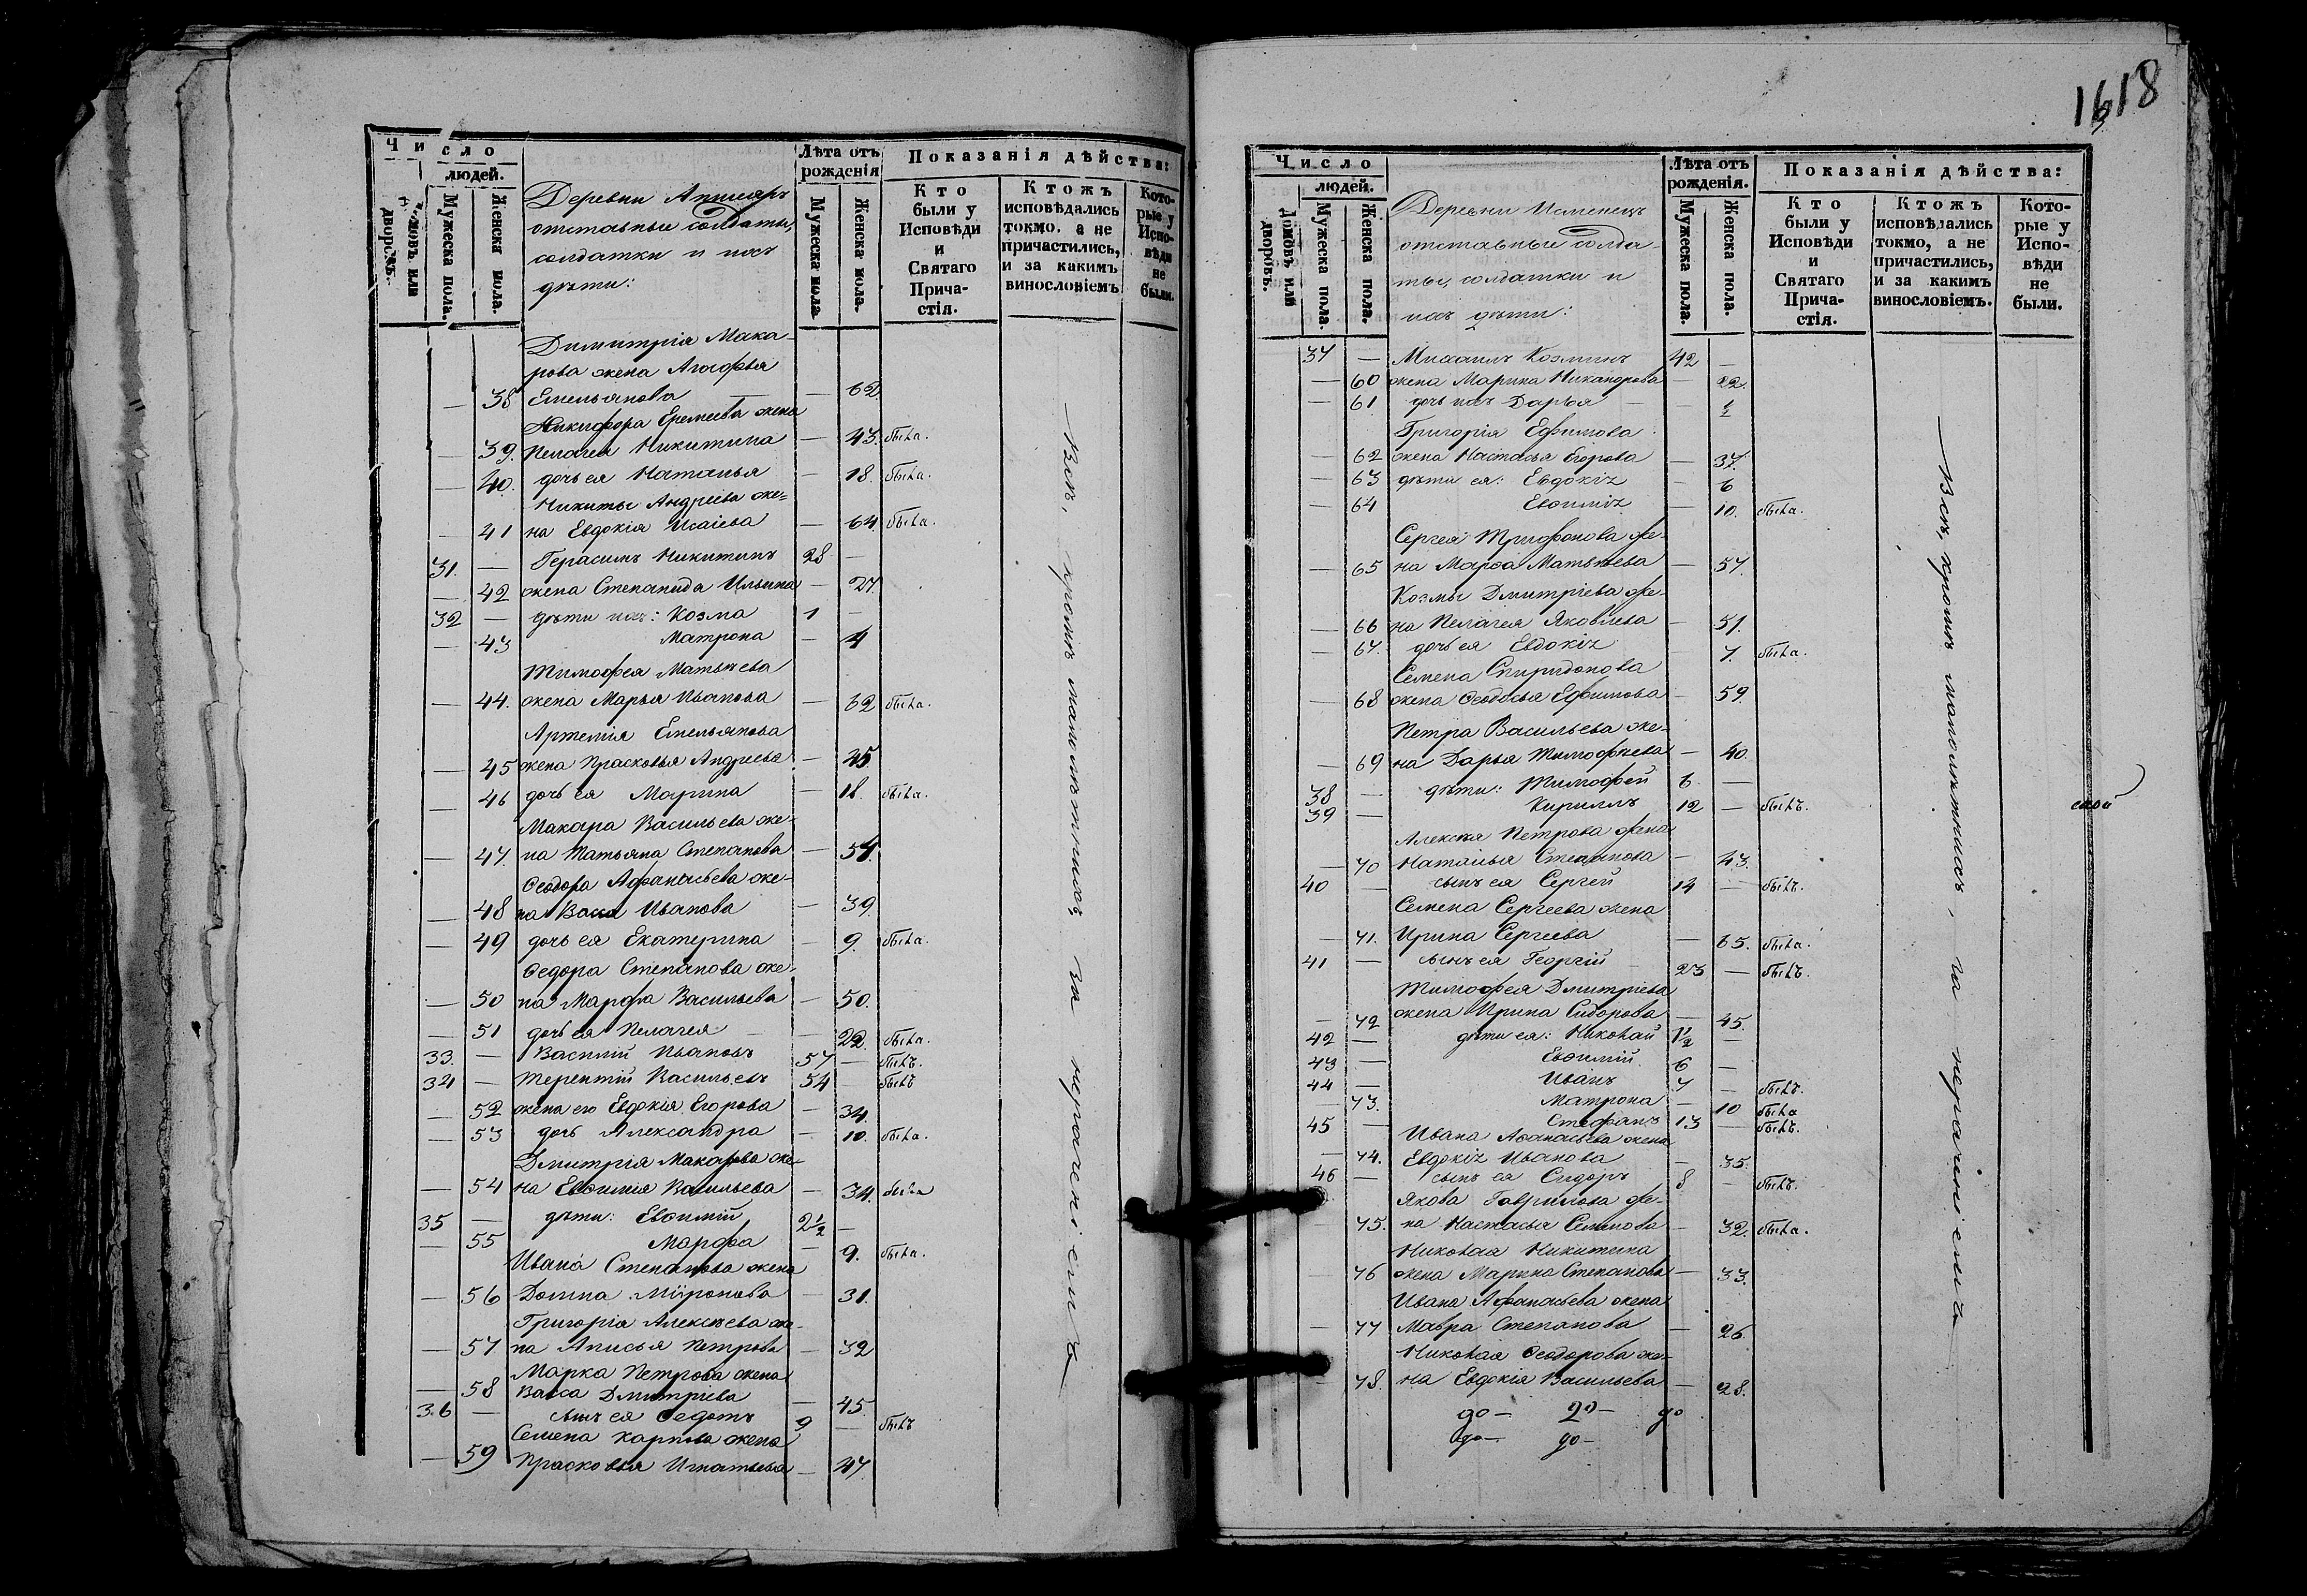 1618
Число
людей.
домовъ или дворовъ.
Мужеска пола.
Женска пола.
Деревни
отставные солдаты,
солдатки и ихъ
дѣти:
Лѣта отъ рожденія
Мужеска пола
Женска пола.
Показанія дѣйства:
Кто были у Исповѣди и Святаго Прича- стія.
Ктожъ исповѣдались токмо, а не причастились, и за какимъ винословіемъ
Кото- рые у Испо- вѣди не были.
Димитрія Мака-
рова жена Агафья
— 38 Емельянова — 62
Никифора Еремеева жена
— 39. Пелагея Никитина — 43. была.
— 40. дочь ея Наталья — 18. была.
Никиты Андреева же-
— 41 на Евдокія Исаіева — 64 была.
31. — Герасимъ Никитинъ 28 —
— 42 жена Степанида Ильина — 27.
32 — дѣти ихъ: Козма 1 —
— 43 Матрона — 4
Тимофея Матвѣева
— 44. жена Марья Иванова — 62 была.
Артемія Емельянова
— 45 жена Прасковья Андреева — 45
— 46 дочь ея Марина — 18. была.
Макара Васильева же-
— 47. на Татьяна Степанова — 57.
Ѳеодора Афанасьева же-
— 48 на Васса Иванова — 39.
— 49 дочь ея Екатерина — 9. была.
Ѳедора Степанова же-
— 50 на Марфа Васильева — 50.
— 51 дочь ея Пелагея — 22. была.
33. — Василій Ивановъ 57 — былъ.
34 — Терентій Васильевъ 54 былъ
— 52 жена его Евдокія Егорова — 34.
— 53 дочь Александра — 10. была.
Дмитрія Макарова же-
— 54 на Евѳимія Васильева — 34. была
35 — дѣти: Евѳимій 2 1/2 —
— 55 Марфа — 9. была.
Ивана Степанова жена
— 56 Домна Миронова — 31.
Григорія Алексѣева же-
— 57 на Анисья Петрова — 32
Марка Петрова жена
— 58 Васса Дмитріева — 45.
36 — сынъ ея Ѳедотъ 9 — былъ
Семена Карпова жена
— 59 Прасковья Игнатьева — 47.
Всѣ, кромѣ малолѣтнихъ, за нераченіемъ
Число
людей.
домовъ или дворовъ.
Мужеска пола.
Женска пола.
Деревни
отставные солда-
ты, солдатки и
ихъ дѣти:
Лѣта отъ рожденія.
Мужеска пола.
Женска пола.
Показанія дѣйства:
Кто были у Исповѣди и Святаго Прича- стія.
Ктожъ исповѣдались токмо, а не причастились, и за какимъ винословіемъ.
Кото- рые у Испо- вѣди не были.
37 — Михаилъ Козминъ 42 —
— 60 жена Марина Никанорова — 22.
— 61 дочь ихъ Дарья — 1/2
Григорія Ефимова
— 62 жена Настасья Егорова — 37.
— 63 дѣти ея: Евдокія — 6
— 64 Евѳимія — 10. была.
Сергея Трифонова же-
— 65 на Марѳа Матвѣева — 57.
Козмы Дмитріева же-
— 66 на Пелагея Яковлева — 51.
— 67. дочь ея Евдокія — 7. была.
Семена Спиридонова
— 68 жена Ѳеодосья Ефимова — 59.
Петра Васильева же-
— 69 на Дарья Тимофѣева — 40.
38 — дѣти: Тимофей 6 —
39 — Кириллъ 12 — былъ.
Алексѣя Петрова жена
— 70 Наталья Степанова — 43.
40 — сынъ ея Сергей 14 — былъ.
Семена Сергеева жена
— 71. Ирина Сергеева — 65. была.
41 — сынъ ея Георгій 23 — былъ.
Тимофея Дмитріева
— 72 жена Ирина Сидорова — 45.
42 — дѣти ея: Николай 1 1/2 —
43 — Евѳимій 6 —
44 — Иванъ 7 — былъ.
— 73. Матрона — 10 была
45 — Стефанъ 13 — былъ.
Ивана Аѳанасьева жена
— 74. Евдокія Иванова — 35.
46 — сынъ ея Сидоръ 8 — былъ.
Якова Гаврилова же-
75. на Настасья Семенова — 32. была.
Николая Никитина
— 76 жена Марина Степанова — 33.
Ивана Афанасьева жена
— 77 Мавра Степанова — 26
Николая Ѳеодорова же-
— 78. на Евдокія Васильева — 28.
до — до — до
до — до —
Всѣ, кромѣ малолѣтнихъ, за нераченіемъ